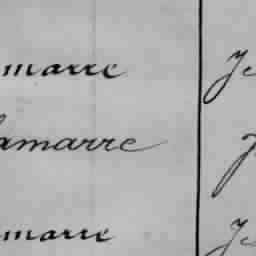 marre Je
amarre J
marre Je